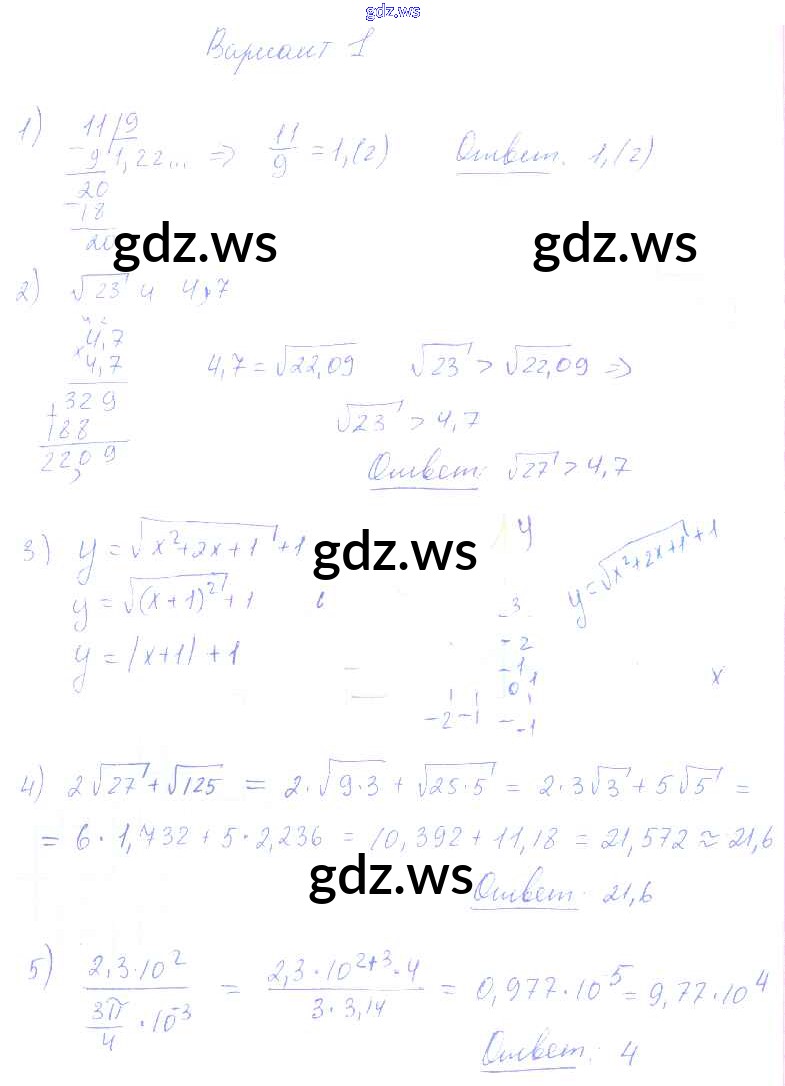 gdz.ws
Вариант 1
1) 11 | 9
- 9 1,22... => 11/9 = 1,(2) Ответ. 1,(2)
20
- 18
20
gdz.ws gdz.ws
2) √23 и 4,7
4,7
x 4,7 4,7 = √22,09 √23 > √22,09 =>
329
+ 188 √23 > 4,7
22,09
Ответ: √27 > 4,7
3) y = √x²+2x+1 + 1 gdz.ws y y = √x²+2x+1 + 1
y = √(x+1)² + 1
y = |x+1| + 1
3
2
1
0 1 x
-2 -1 -1
4) 2√27 + √125 = 2·√9·3 + √25·5 = 2·3√3 + 5√5 =
= 6·1,732 + 5·2,236 = 10,392 + 11,18 = 21,572 ≈ 21,6
gdz.ws
Ответ. 21,6
5) 2,3·10² / (3π/4 · 10⁻³) = 2,3·10²⁺³·4 / 3·3,14 = 0,977·10⁵ = 9,77·10⁴
Ответ: 4